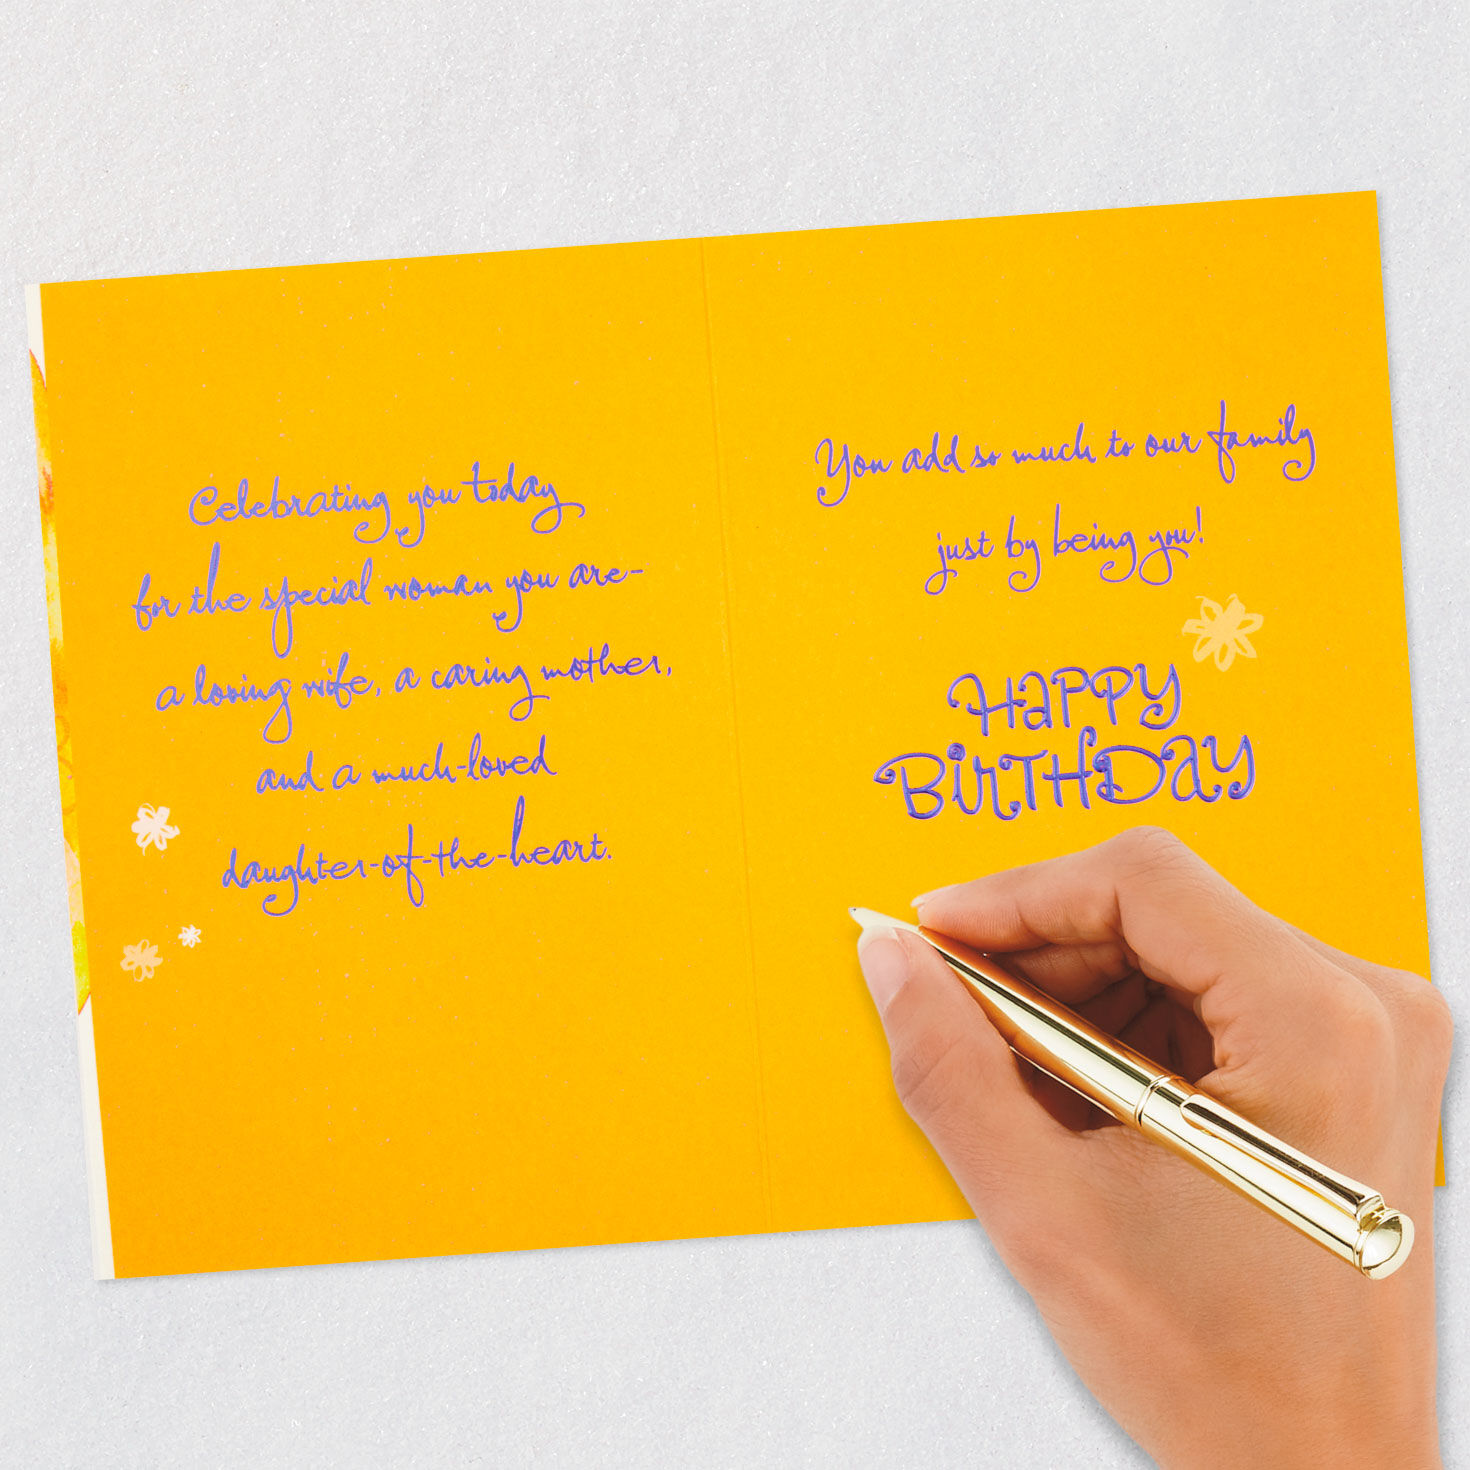 Celebrating you today
for the special woman you are-
a loving wife, a caring mother,
and a much-loved
daughter-of-the-heart.
You add so much to our family
just by being you!
HAPPY
BIRTHDAY